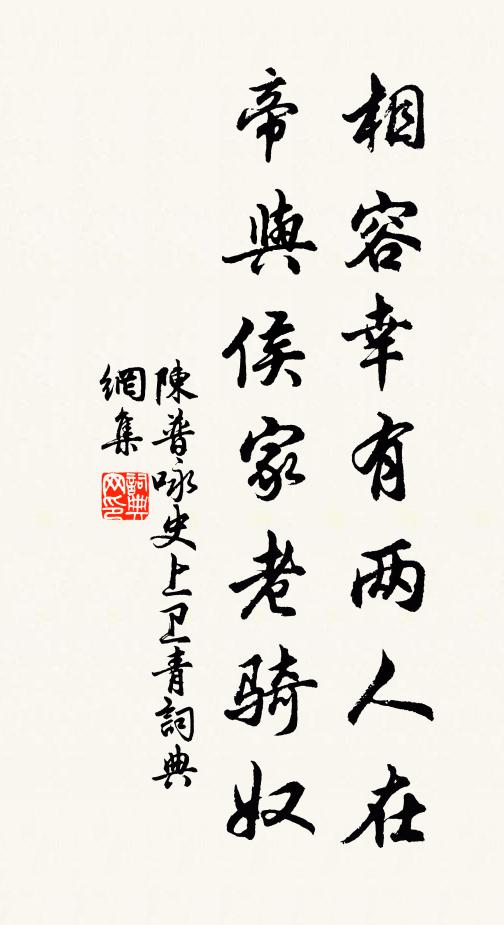 相容幸有两人在
帝與侯家老騎奴
陳普咏史上卫青詞典
網集
詞典
网印